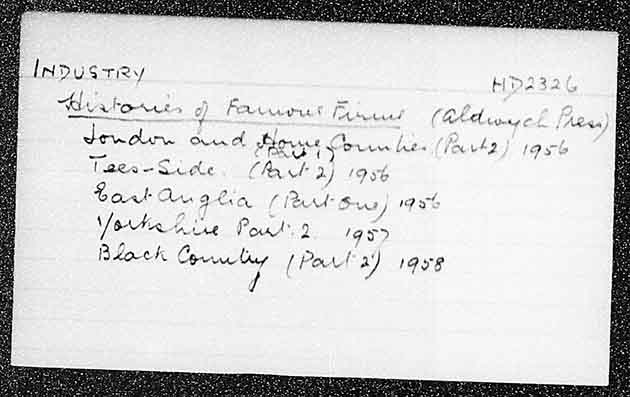 INDUSTRY HD2326
Histories of Famous Firms (Aldwych Press)
London and Home Counties (Part 2) 1956
(Part 1)
Tees-Side. (Part 2) 1956
East Anglia (Part One) 1956
Yorkshire Part. 2 1957
Black Country (Part 2) 1958